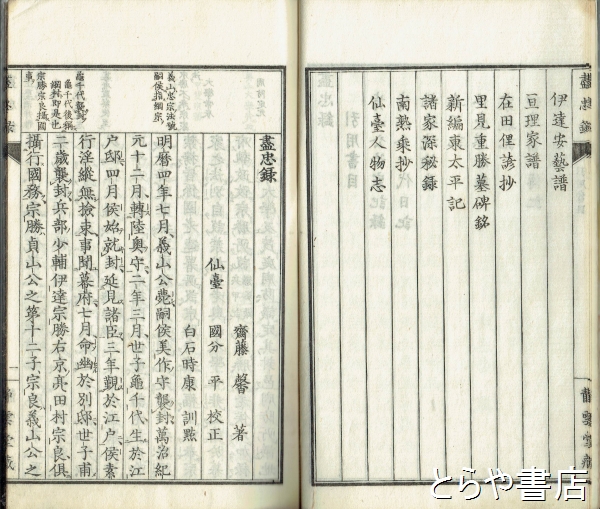 伊達安藝譜
亘理家譜
在田俚諺抄
里見重勝墓碑銘
新編東太平記
諸家深秘錄
南熱乘抄
仙臺人物志
盡忠錄
齋藤馨著
仙臺 國分平 校正
白石時康 訓點
明曆四年七月義山公薨嗣侯美作守襲封萬治紀
元十二月轉陸奧守二年三月世子龜千代生於江
戶邸四月侯始就封延見諸臣三年覲於江戶侯素
行淫縱無撿束事聞幕府七月命幽於別邸世子甫
二歲襲封兵部少輔伊達宗勝右京亮田村宗良俱
攝行國務宗勝貞山公之第十二子宗良義山公之
義山忠宗法號
嗣侯指綱宗
龜千代襲封
龜千代後稱
綱村即是也
宗勝宗良攝國
事
とらや書店